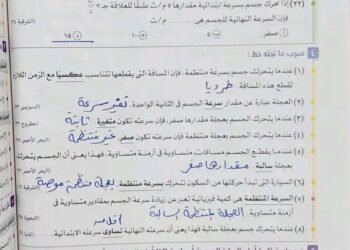 (٢٢) إذا تحرك جسم بسرعة ابتدائية مقدارها ٥ م/ث طبقًا للعلاقة جـ =
فإن السرعة النهائية للجسم هي م/ث
١ صفر ٥ ١٠ ١٥
٤ صوب ما تحته خط :
(١) عندما يتحرك جسم بسرعة منتظمة، فإن المسافة التي يقطعها تتناسب عكسيًا مع الزمن اللازم
لقطع هذه المسافة. طرديا
(٢) العجلة عبارة عن مقدار سرعة الجسم في الثانية الواحدة. تغير سرعة
(٣) عندما يتحرك الجسم بعجلة مقدارها صفر، فإن سرعته تكون متغيرة. ثابتة
(٤) عندما يتحرك الجسم بعجلة فإن سرعته تكون صفر. غير منتظمة
(٥) عندما يقطع الجسم مسافات متساوية في أزمنة متساوية، فهذا يعني أن الجسم يتحرك
بعجلة سالبة. مقدارها صفر
(٦) السيارة التي تبدأ حركتها من السكون تتحرك بسرعة منتظمة. بعجلة منتظمة موجبة
(٧) السرعة المنتظمة هي كمية فيزيائية تعبر عن زيادة سرعة الجسم بمقادير متساوية في
أزمنة متساوية. العجلة المنتظمة
(٨) عندما يتحرك جسم بعجلة سالبة فهذا يعني أن سرعته النهائية تساوي سرعته الابتدائية.